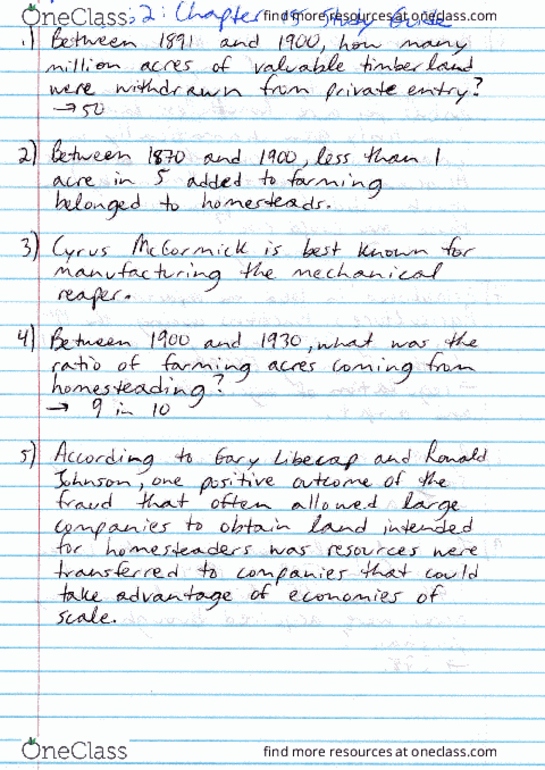 OneClass
find more resources at oneclass.com
2: Chapter Study Guide
1) Between 1891 and 1900, how many
million acres of valuable timberland
were withdrawn from private entry?
→ 50
2) Between 1870 and 1900, less than 1
acre in 5 added to farming
belonged to homesteads.
3) Cyrus McCormick is best known for
manufacturing the mechanical
reaper.
4) Between 1900 and 1930, what was the
ratio of farming acres coming from
homesteading?
→ 9 in 10
5) According to Gary Libecap and Ronald
Johnson, one positive outcome of the
fraud that often allowed large
companies to obtain land intended
for homesteaders was resources were
transferred to companies that could
take advantage of economies of
scale.
OneClass
find more resources at oneclass.com